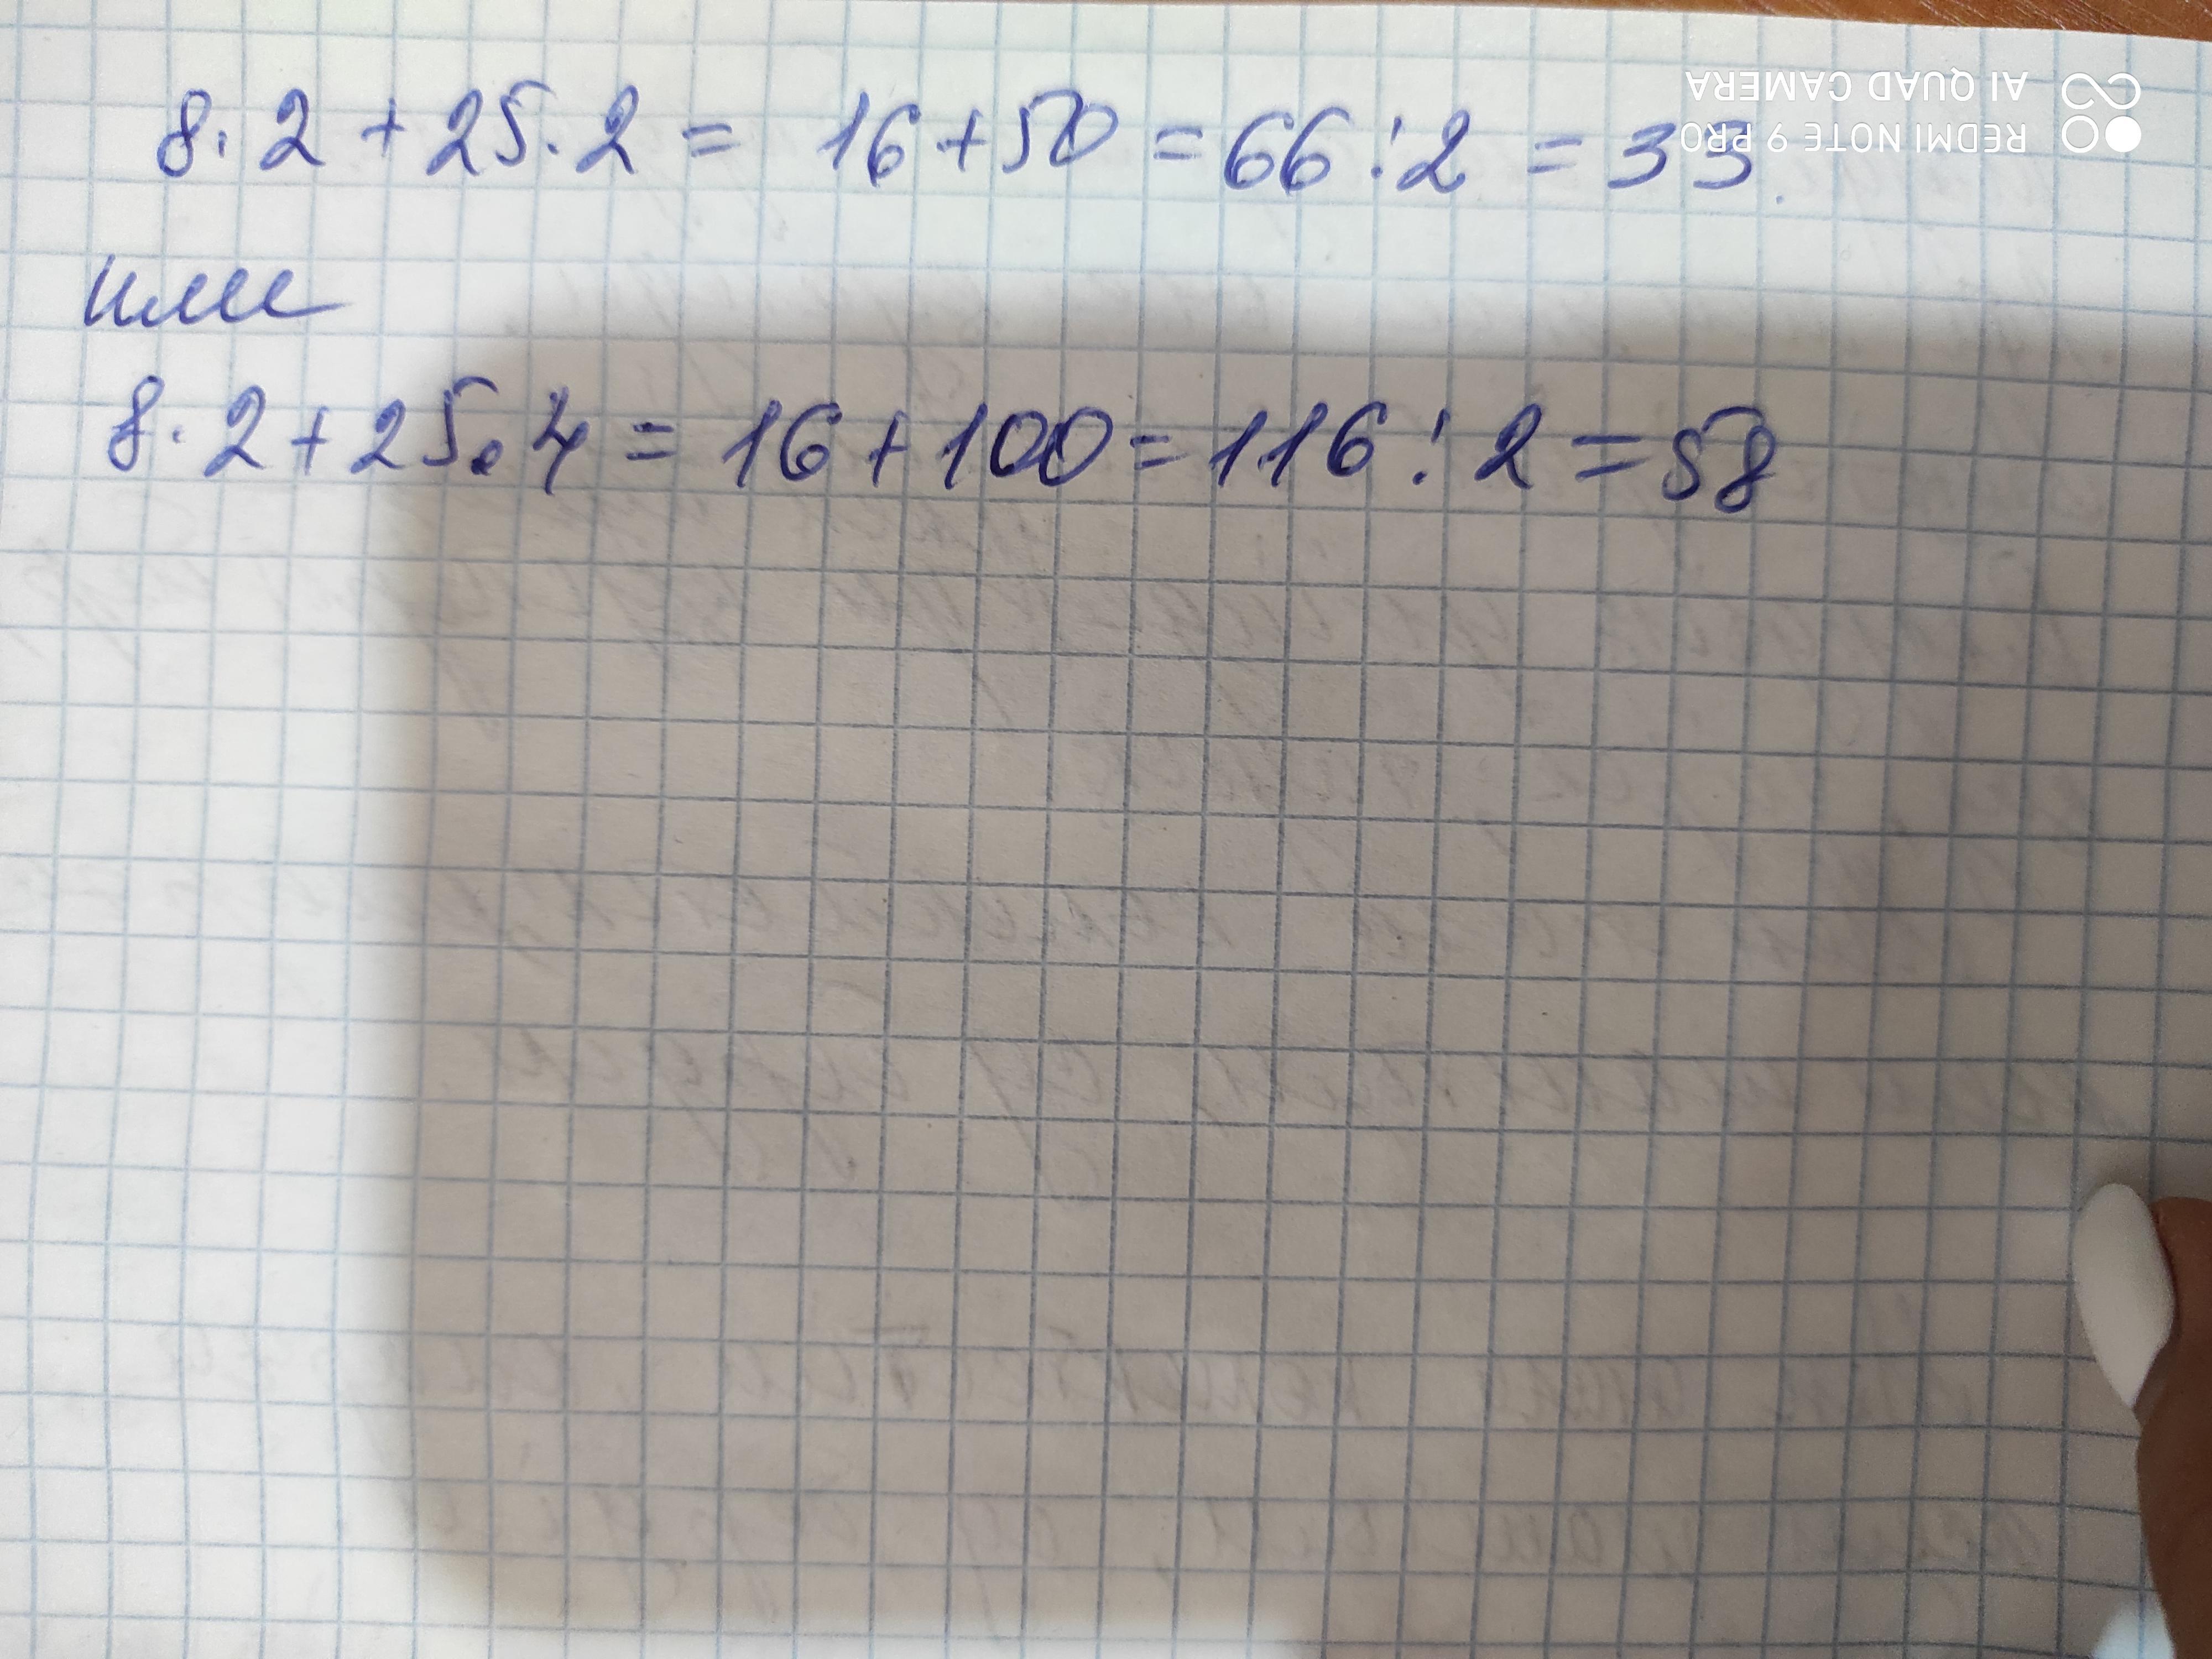 8·2+25·2= 16+50=66:2=33.
REDMI NOTE 9 PRO
AI QUAD CAMERA
или
8·2+25·4=16+100=116:2=58